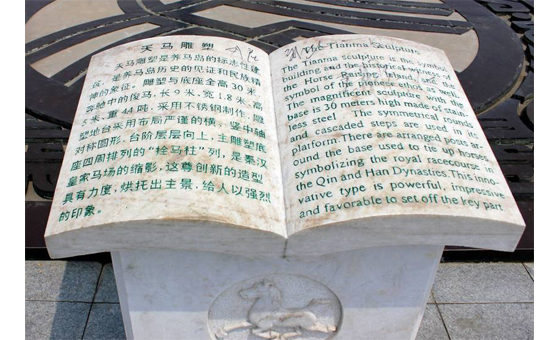 天马雕塑
天马雕塑是养马岛的标志性建
筑，是养马岛历史的见证和民族精
神的象征。雕塑与底座全高30米，
奔驰中的俊马，长9米，宽1.8米，高
米，重44吨，采用不锈钢制作。雕
塑地台采用布局严谨的横、竖中轴
对称图形，台阶层层向上，主雕塑底
座四周排列的“拴马柱”列，是秦汉
皇家马场的缩影，这尊创新的造型
具有力度，烘托出主景，给人以强烈
的印象。
The Tianma Sculpture
The Tianma sculpture is the symbolic
building and the historical witness of
the Horse Raising Island, and the
symbol of the pioneer ethos as well.
The magnificent sculpture with the
base is 30 meters high made of stain-
less steel. The symmetrical transits
and cascaded steps are used in its
platform. There are arranged pillars ar-
ound the base used to tie up horses,
symbolizing the royal racecourse in
the Qin and Han Dynasties. This inno-
vative type is powerful, impressive
and favorable to set off the key part